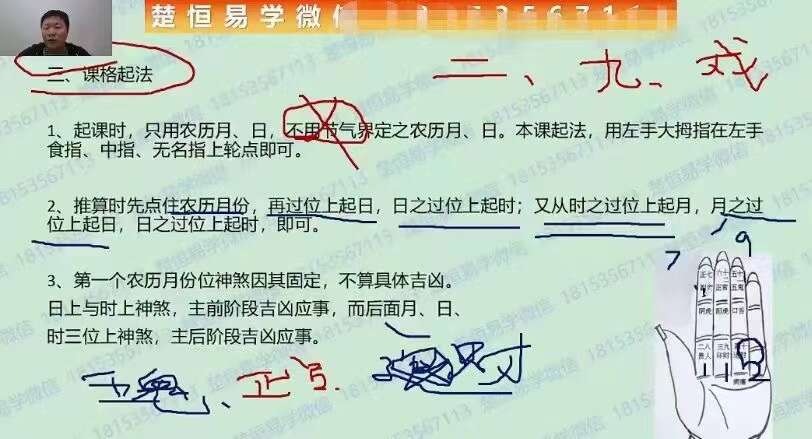 楚恒易学微信
二、九、戌
三、课格起法
1、起课时，只用农历月、日，不用节气界定之农历月、日。本课起法，用左手大拇指在左手
食指、中指、无名指上轮点即可。
2、推算时先点住农历月份，再过位上起日，日之过位上起时；又从时之过位上起月，月之过
位上起日，日之过位上起时，即可。
7 9
3、第一个农历月份位神煞因其固定，不算具体吉凶。
日上与时上神煞，主前阶段吉凶应事，而后面月、日、
时三位上神煞，主后阶段吉凶应事。
正七
六十
五十
阴虎
二八
贵人
三九
1 1 2
18153567113 楚恒易学微信